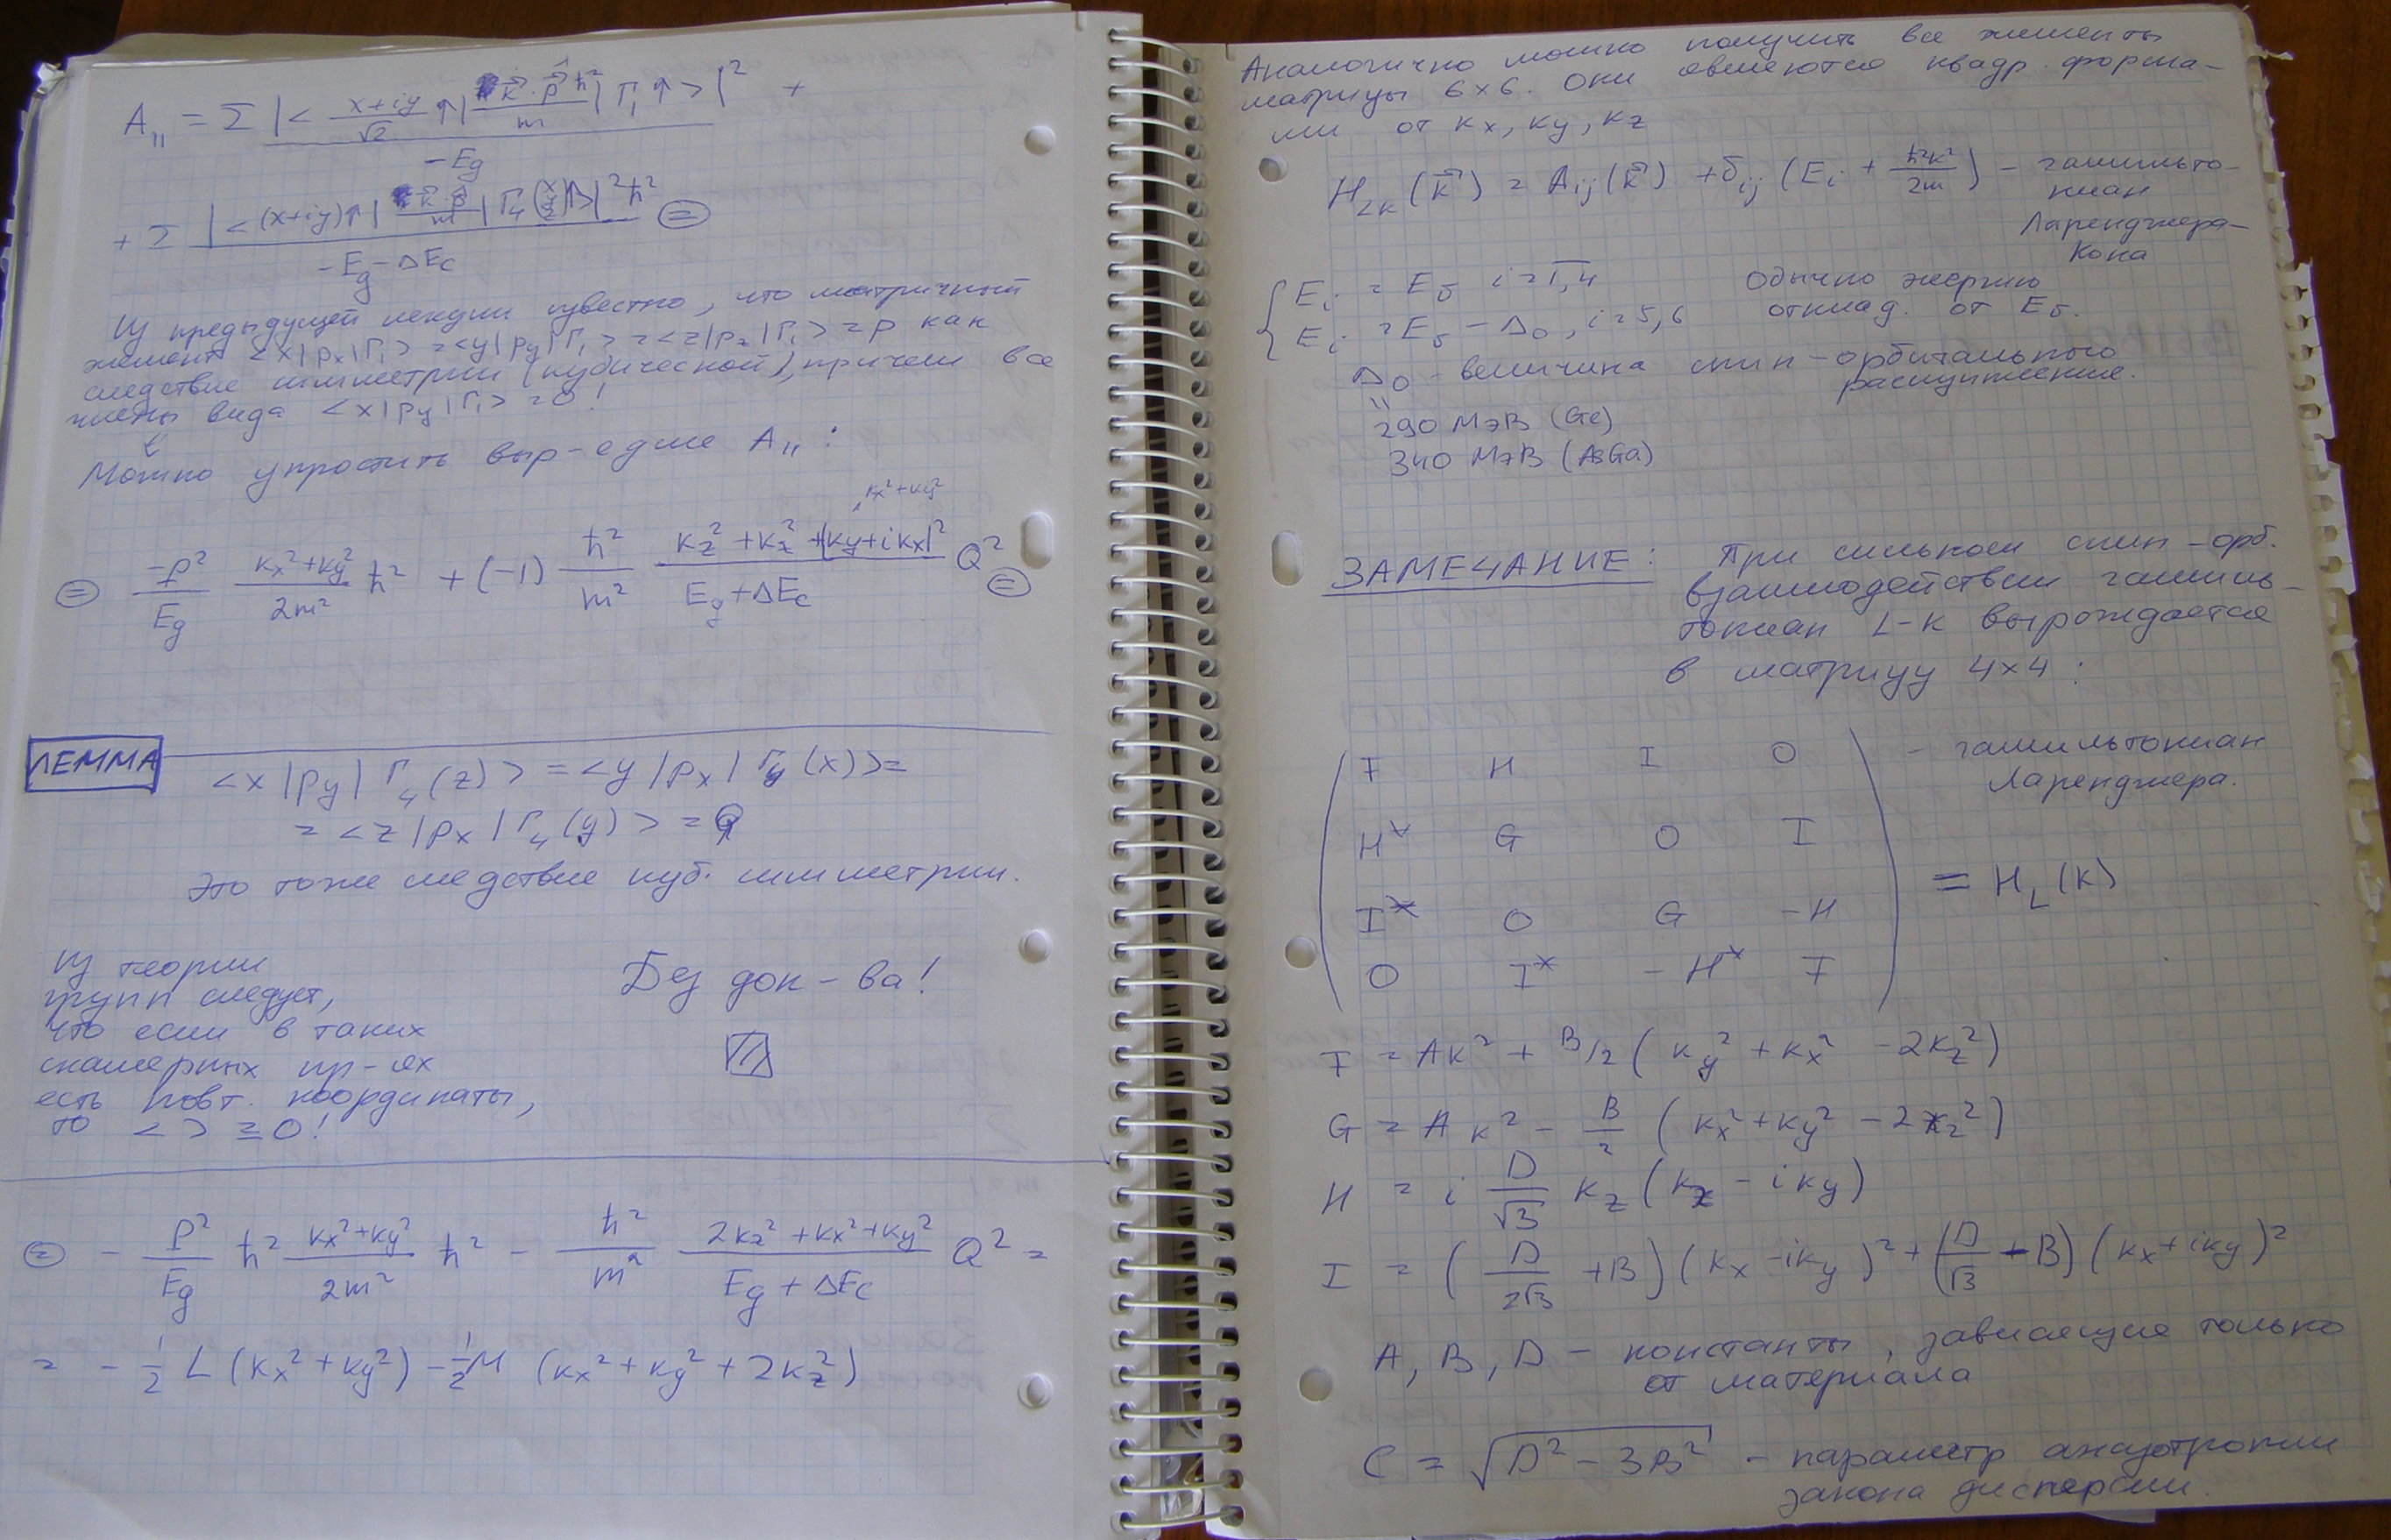 A₁₁ = Σ |< (x+iy)/√2 ↑| k⃗·p̂⃗ ħ²/m | Γ₁↑ >|² / −Eg +
+ Σ |<(x+iy)↑| k⃗ p̂/m | Γ₄ (x y z) ↑>|² ħ² / −Eg − ΔEc ⊜
Из предыдущей лекции известно, что матричный
элемент <x|px|Γ₁> = <y|py|Γ₁> = <z|pz|Γ₁> = p как
следствие симметрии (кубической), причем все
члены вида <x|py|Γ₁> = 0!
Можно упростить выр-е для A₁₁:
kx²+ky²
⊜ −p²/Eg (kx²+ky²)/2m² ħ² + (−1) ħ²/m² (kz²+kz²+|ky+ikx|²)/(Eg+ΔEc) Q² ⊜
ЛЕММА
<x|py|Γ₄(z)> = <y|px|Γ₄(x)> =
= <z|px|Γ₄(y)> = Q
Это тоже следствие куб. симметрии.
Из теории
групп следует,
что если в таких
скалярных пр-ях
есть повт. координаты,
то < > ≡ 0!
Без док-ва!
⊜ − p²/Eg ħ² (kx²+ky²)/2m² ħ² − ħ²/m² (2kz²+kx²+ky²)/(Eg+ΔEc) Q² =
= − 1/2 L (kx²+ky²) − 1/2 M (kx²+ky²+2kz²)
Аналогично можно получить все элементы
матрицы 6×6. Они являются квадр. форма-
ми от kx, ky, kz
H_LK (k⃗) = Aij(k⃗) + δij (Ei + ħ²k²/2m) – гамильто-
ниан
Ларенджера-
Кона
{ Ei = Eσ i = 1,4
Ei = Eσ − Δ₀, i = 5,6
Обычно энергию
отклад. от Eσ.
Δ₀ – величина спин-орбитального
расщипление.
"
290 МэВ (Ge)
340 МэВ (AsGa)
ЗАМЕЧАНИЕ: При сильном спин-орб.
взаимодействии гамиль-
тониан L-K вырождается
в матрицу 4×4:
F H I 0 – гамильтониан
Ларенджера.
H* G 0 I
= H_L(k)
I* 0 G −H
0 I* −H* F
F = Ak² + B/2 (ky² + kx² − 2kz²)
G = Ak² − B/2 (kx² + ky² − 2kz²)
H = i D/√3 kz (kx − iky)
I = (D/2√3 + B)(kx − iky)² + (D/√3 − B)(kx + iky)²
A, B, D – константы, зависящие только
от материала
C = √(D² − 3B²) – параметр анизотропии
закона дисперсии.